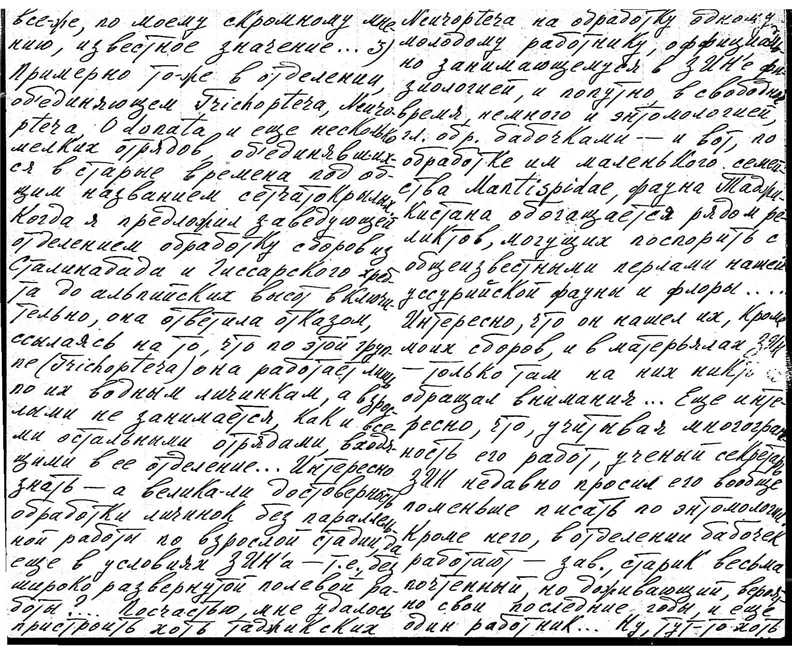 все-же, по моему скромному мне-
нию, известное значение... 3)
Примерно то-же в отделении,
объединяющем Trichoptera, Neuro-
ptera, Odonata и еще несколько
мелких отрядов, объединявших-
ся в старые времена под об-
щим названием сетчатокрылых
Когда я предложил заведующей
отделением обработку сборов из
Сталинабада и Гиссарского хреб-
та до альпийских высот включи-
тельно, она ответила отказом,
ссылаясь на то, что по этой груп-
пе (Trichoptera) она работает лишь
по их водным личинкам, а взрос-
лыми не занимается, как и все-
ми остальными отрядами, входя-
щими в ее отделение... Интересно
знать — а велика-ли достоверность
обработки личинок без параллель-
ной работы по взрослой стадии, да
еще в условиях ЗИН'а — т.е. без
широко развернутой полевой ра-
боты?... Посчастью, мне удалось
пристроить хоть таджикских
Neuroptera на обработку одному
молодому работнику, официаль-
но занимающемуся в ЗИН'е фи-
зиологией, и попутно, в свободное
время, немного и энтомологией,
гл. обр. бабочками — и вот, по
обработке им маленького семей-
ства Mantispidae, фауна Таджи-
кистана обогащается рядом ре-
ликтов, могущих поспорить с
общеизвестными перлами нашей
уссурийской фауны и флоры....
Интересно, что он нашел их, кроме
моих сборов, и в матерьялах ЗИН
— только там на них никто
обращал внимания... Еще инте-
ресно, что, учитывая многогран-
ность его работ, ученый секретарь
ЗИН недавно просил его вообще
поменьше писать по энтомологии.
Кроме него, в отделении бабочек
работают — зав., старик весьма
почтенный, но доживающий, вероят-
но свои последние годы, и еще
один работник... Ну, тут-то хоть